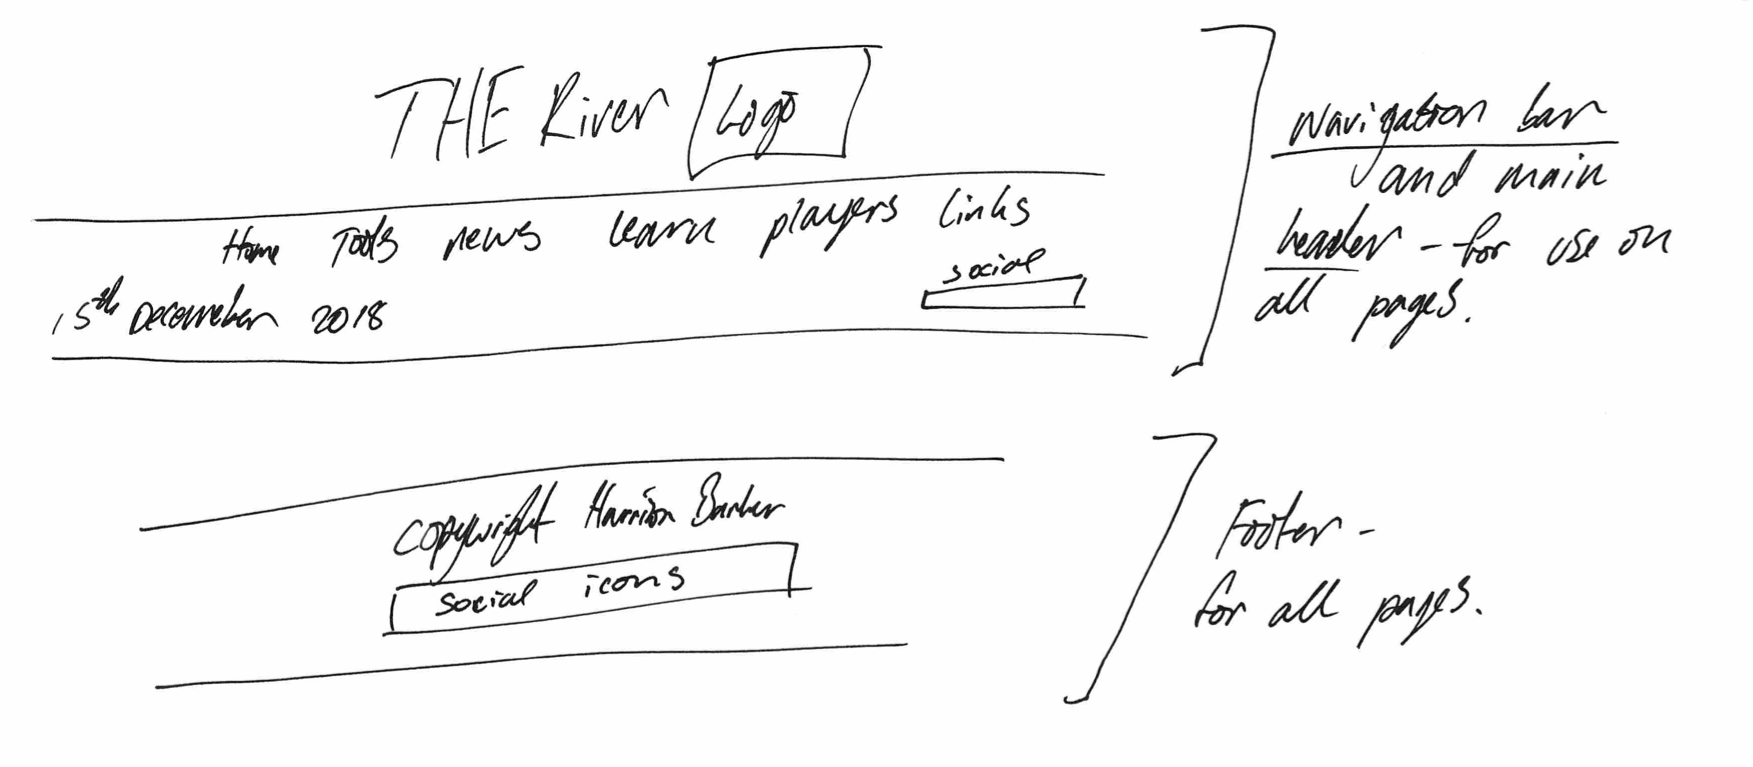 THE River Logo
Home Tools news learn players Links
social
15th December 2018
Navigation bar
and main
header - for use on
all pages.
copywright Harrison Barker
social icons
Footer -
for all pages.